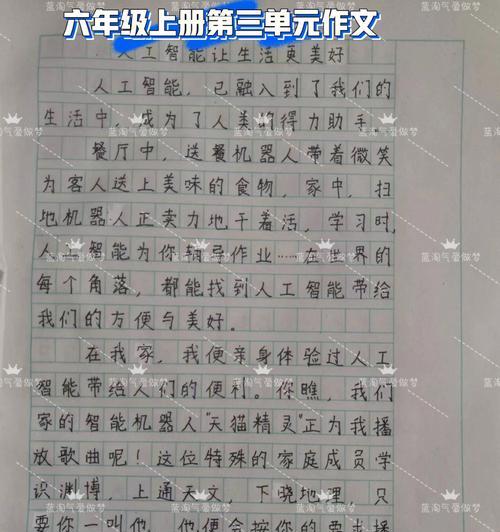 六年级上册第三单元作文
人工智能让生活更美好
人工智能,已融入到了我们的
生活中,成为了人类的得力助手。
餐厅中,送餐机器人带着微笑
为客人送上美味的食物,家中,扫
地机器人正卖力地干着活,学习时,
人工智能为你辅导作业……在世界的
每个角落,都能找到人工智能带给
我们的方便与美好。
在我家,我便亲身体验过人工
智能带给人们的便利。你瞧,我们
家的智能机器人“天猫精灵”正为我播
放歌曲呢!这位特殊的家庭成员学
识渊博,上通天文,下晓地理,只
要你一叫他,他便会按你的要求播
蓝淘气爱做梦